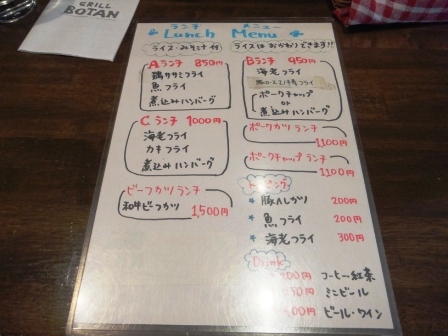 GRILL
BOTAN
ランチ メニュー
Lunch Menu
ライス・みそ汁付
ライスは おかわりできます!!
Aランチ 850円
鶏ササミフライ
魚フライ
煮込みハンバーグ
Bランチ 950円
海老フライ
ポークチャップ
or
煮込みハンバーグ
C ランチ 1000円
海老フライ
カキフライ
煮込みハンバーグ
ポークカツ ランチ
1100円
ポークチャップ ランチ
1100円
ビーフカツ ランチ
和牛ビーフカツ
1,500円
トッピング
豚ヘレカツ 200円
魚フライ 200円
海老フライ 300円
Drink
コーヒー・紅茶
ミニビール
ビール・ワイン